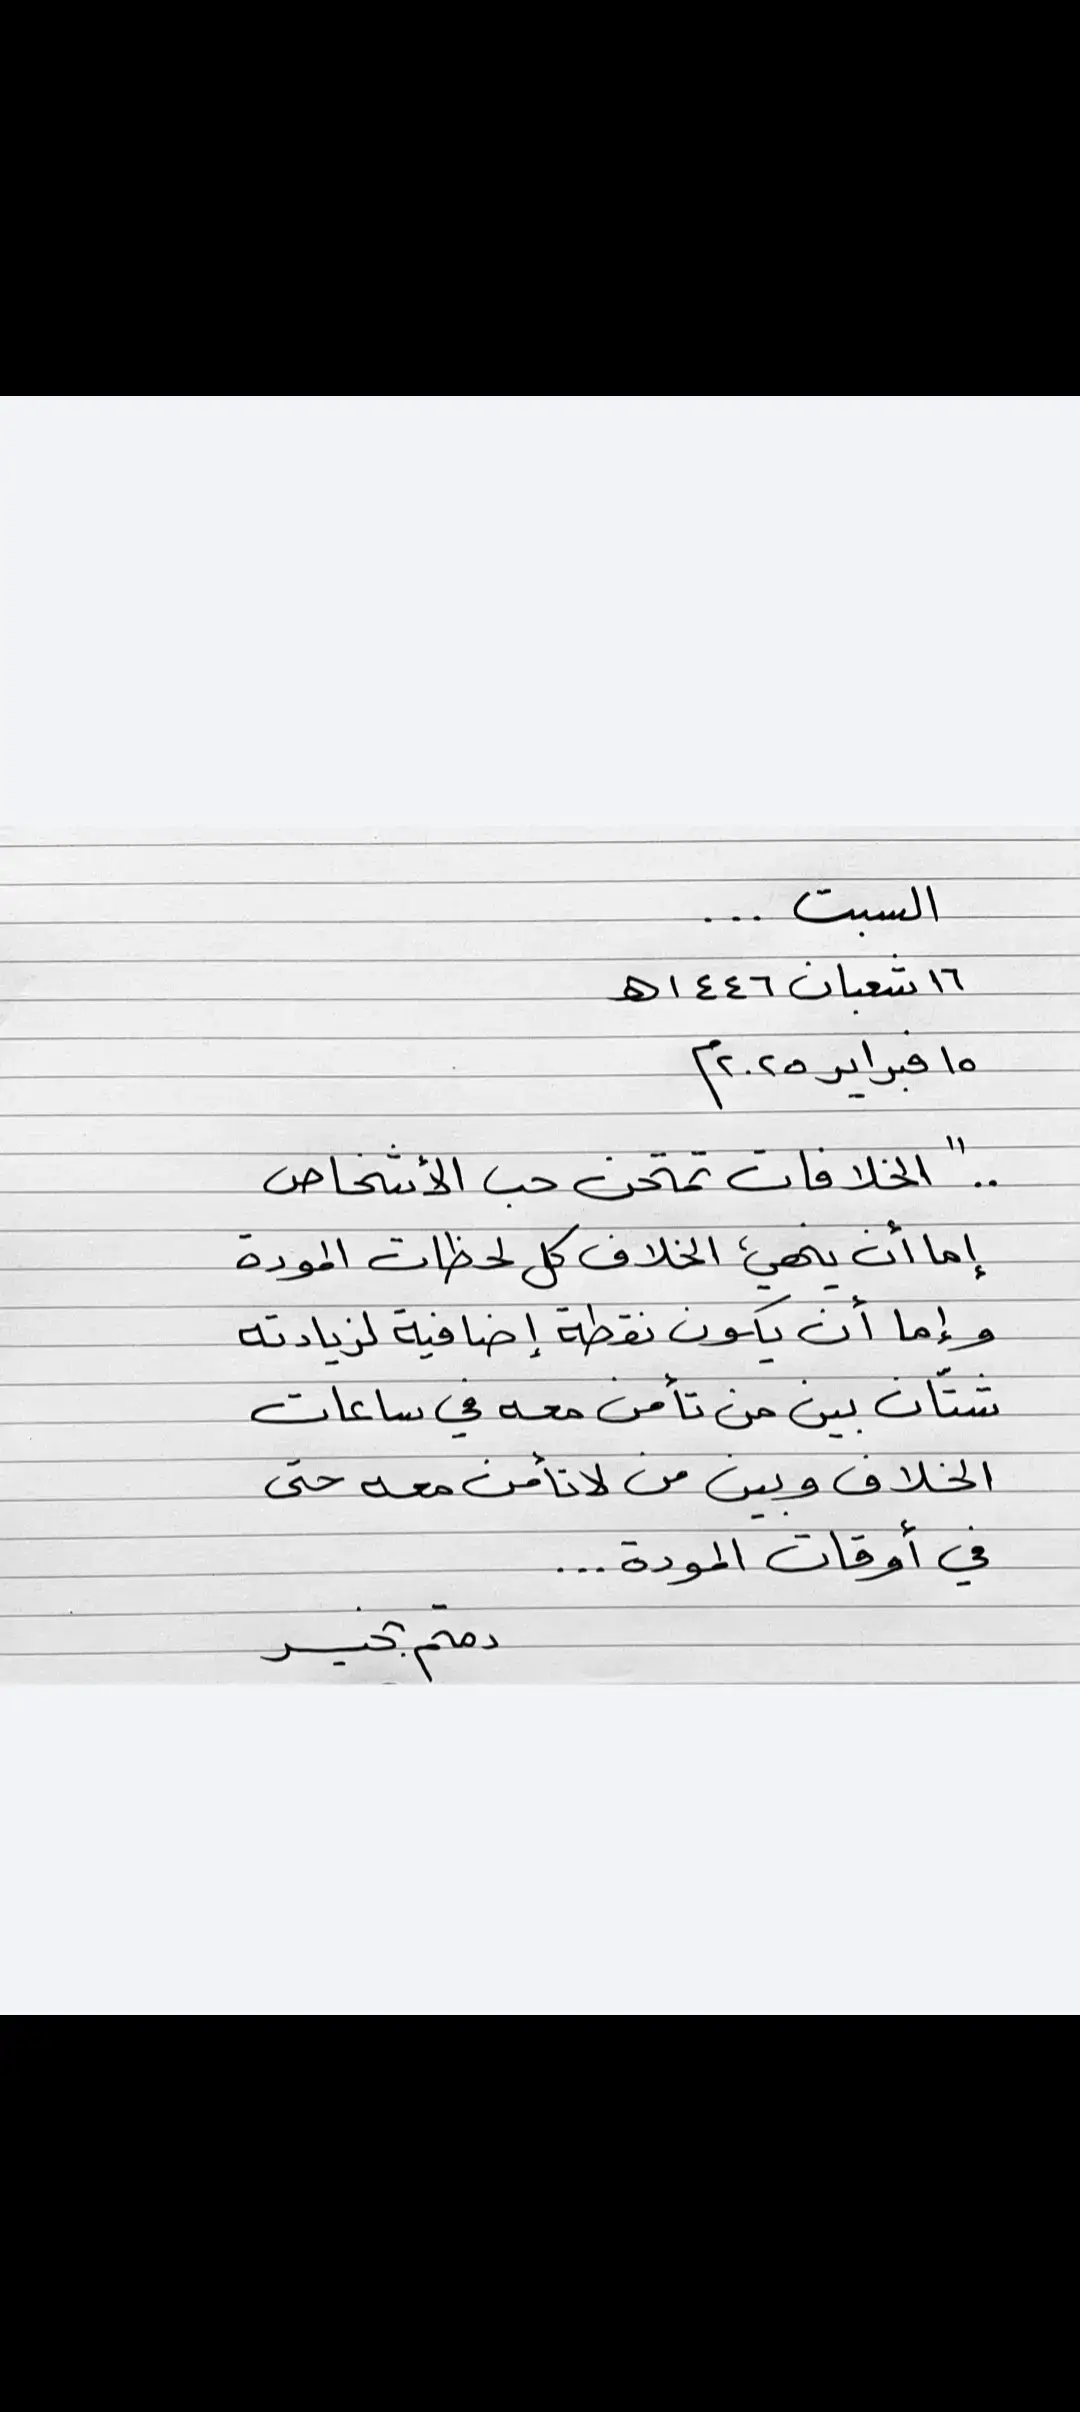 السبت ...
١٦ شعبان ١٤٤٦هـ
١٥ فبراير ٢٠٢٥م
.." الخلافات تمتحن حب الأشخاص
إما أن ينهيء الخلاف كل لحظات المودة
وإما أن يكون نقطة إضافية لزيادته
شتّان بين من تأمن معه في ساعات
الخلاف وبين من لا تأمن معه حتى
في أوقات المودة ...
دمتم بخير